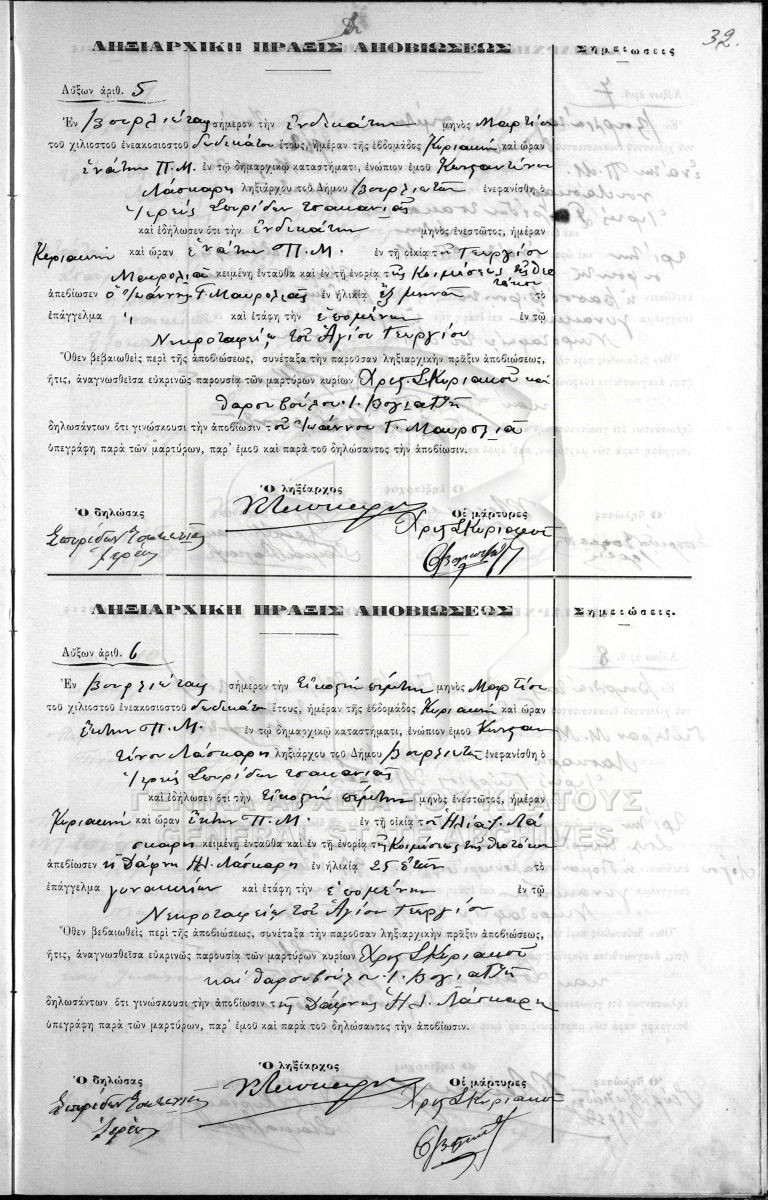 32.
ΛΗΞΙΑΡΧΙΚΗ ΠΡΑΞΙΣ ΑΠΟΒΙΩΣΕΩΣ Σημειώσεις
Αὔξων ἀριθ. 5
Ἐν Βουρλιώταις σήμερον τὴν ἑνδεκάτην μηνὸς Μαρτίου
τοῦ χιλιοστοῦ ἐνεακοσιοστοῦ δωδεκάτου ἔτους, ἡμέραν τῆς ἑβδομάδος Κυριακὴν καὶ ὥραν
ἐνάτην Π.Μ. ἐν τῷ δημαρχικῷ καταστήματι, ἐνώπιον ἐμοῦ Κωνσταντίνου
Λάσκαρη ληξιάρχου τοῦ Δήμου Βουρλιωτῶν ἐνεφανίσθη ὁ
Ἱερεὺς Σπυρίδων Τσακανιᾶς
καὶ ἐδήλωσεν ὅτι τὴν ἑνδεκάτην μηνὸς ἐνεστῶτος, ἡμέραν
Κυριακὴν καὶ ὥραν ἐνάτην Π.Μ. ἐν τῇ οἰκίᾳ τοῦ Γεωργίου
Μαυρολιᾶ κειμένῃ ἐνταῦθα καὶ ἐν τῇ ἐνορίᾳ τῆς Κοιμήσεως τῆς Θεοτόκου
ἀπεβίωσεν ὁ Ἰωάννης Γ. Μαυρολιᾶς ἐν ἡλικίᾳ ἓξ μηνῶν τὸ
ἐπάγγελμα " καὶ ἐτάφη τὴν ἑπομένην ἐν τῷ
Νεκροταφείῳ τοῦ Ἁγίου Γεωργίου
Ὅθεν βεβαιωθεὶς περὶ τῆς ἀποβιώσεως, συνέταξα τὴν παροῦσαν ληξιαρχικὴν πρᾶξιν ἀποβιώσεως,
ἥτις, ἀναγνωσθεῖσα εὐκρινῶς παρουσίᾳ τῶν μαρτύρων κυρίων Χρις. Σ. Κυριακοῦ καὶ
Θαρσυβούλου Ι. Βογιατζῆ
δηλωσάντων ὅτι γινώσκουσι τὴν ἀποβίωσιν τοῦ Ἰωάννου Γ. Μαυρολιᾶ
ὑπεγράφη παρὰ τῶν μαρτύρων, παρ' ἐμοῦ καὶ παρὰ τοῦ δηλώσαντος τὴν ἀποβίωσιν.
Ὁ ληξίαρχος
Ὁ δηλώσας Κ Λάσκαρης Οἱ μάρτυρες
Σπυρίδων Τσακανιᾶς Χρις Σ Κυριακοῦ
Ἱερεύς
ΛΗΞΙΑΡΧΙΚΗ ΠΡΑΞΙΣ ΑΠΟΒΙΩΣΕΩΣ Σημειώσεις.
Αὔξων ἀριθ. 6
Ἐν Βουρλιώταις σήμερον τὴν εἰκοστὴν πέμπτην μηνὸς Μαρτίου
τοῦ χιλιοστοῦ ἐνεακοσιοστοῦ δωδεκάτου ἔτους, ἡμέραν τῆς ἑβδομάδος Κυριακὴν καὶ ὥραν
ἕκτην Π.Μ. ἐν τῷ δημαρχικῷ καταστήματι, ἐνώπιον ἐμοῦ Κωνσταν
τίνου Λάσκαρη ληξιάρχου τοῦ Δήμου Βουρλιωτῶν ἐνεφανίσθη ὁ
Ἱερεὺς Σπυρίδων Τσακανιᾶς
καὶ ἐδήλωσεν ὅτι τὴν εἰκοστὴν πέμπτην μηνὸς ἐνεστῶτος, ἡμέραν
ΓΕΝΙΚΑ ΑΡΧΕΙΑ ΤΟΥ ΚΡΑΤΟΥΣ
Κυριακὴν καὶ ὥραν ἕκτην Π.Μ. ἐν τῇ οἰκίᾳ τοῦ Ἠλία Ι. Λά
GENERAL STATE ARCHIVES
σκαρη κειμένῃ ἐνταῦθα καὶ ἐν τῇ ἐνορίᾳ τῆς Κοιμήσεως τῆς Θεοτόκου
ἀπεβίωσεν ἡ Δάφνη Ἠλ. Λάσκαρη ἐν ἡλικίᾳ 25 ἐτῶν τὸ
ἐπάγγελμα γυναικείων καὶ ἐτάφη τὴν ἑπομένην ἐν τῷ
Νεκροταφείῳ τοῦ Ἁγίου Γεωργίου
Ὅθεν βεβαιωθεὶς περὶ τῆς ἀποβιώσεως, συνέταξα τὴν παροῦσαν ληξιαρχικὴν πρᾶξιν ἀποβιώσεως,
ἥτις, ἀναγνωσθεῖσα εὐκρινῶς παρουσίᾳ τῶν μαρτύρων κυρίων Χρις Σ. Κυριακοῦ
καὶ Θαρσυβούλου Ι. Βογιατζῆ
δηλωσάντων ὅτι γινώσκουσι τὴν ἀποβίωσιν τῆς Δάφνης Ἠ. Ι. Λάσκαρη
ὑπεγράφη παρὰ τῶν μαρτύρων, παρ' ἐμοῦ καὶ παρὰ τοῦ δηλώσαντος τὴν ἀποβίωσιν.
Ὁ ληξίαρχος
Ὁ δηλώσας Κ Λάσκαρης Οἱ μάρτυρες
Σπυρίδων Τσακανιᾶς Χρις Σ Κυριακοῦ
Ἱερεύς